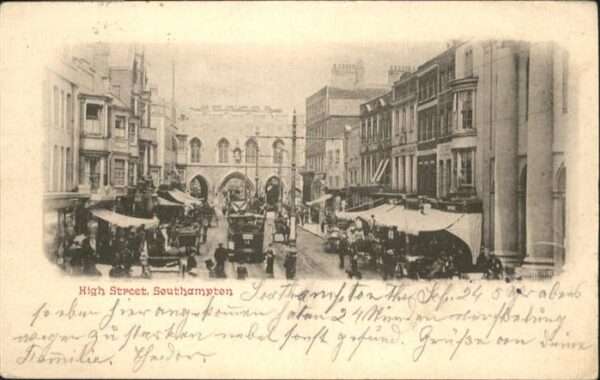 High Street, Southampton
Southampton the 24 5 Uhr abens
so eben hier angekommen haben 24 Verspätung
wegen zu starken nebel sonst gesund. Grüße von Deine
Familie. Theodor